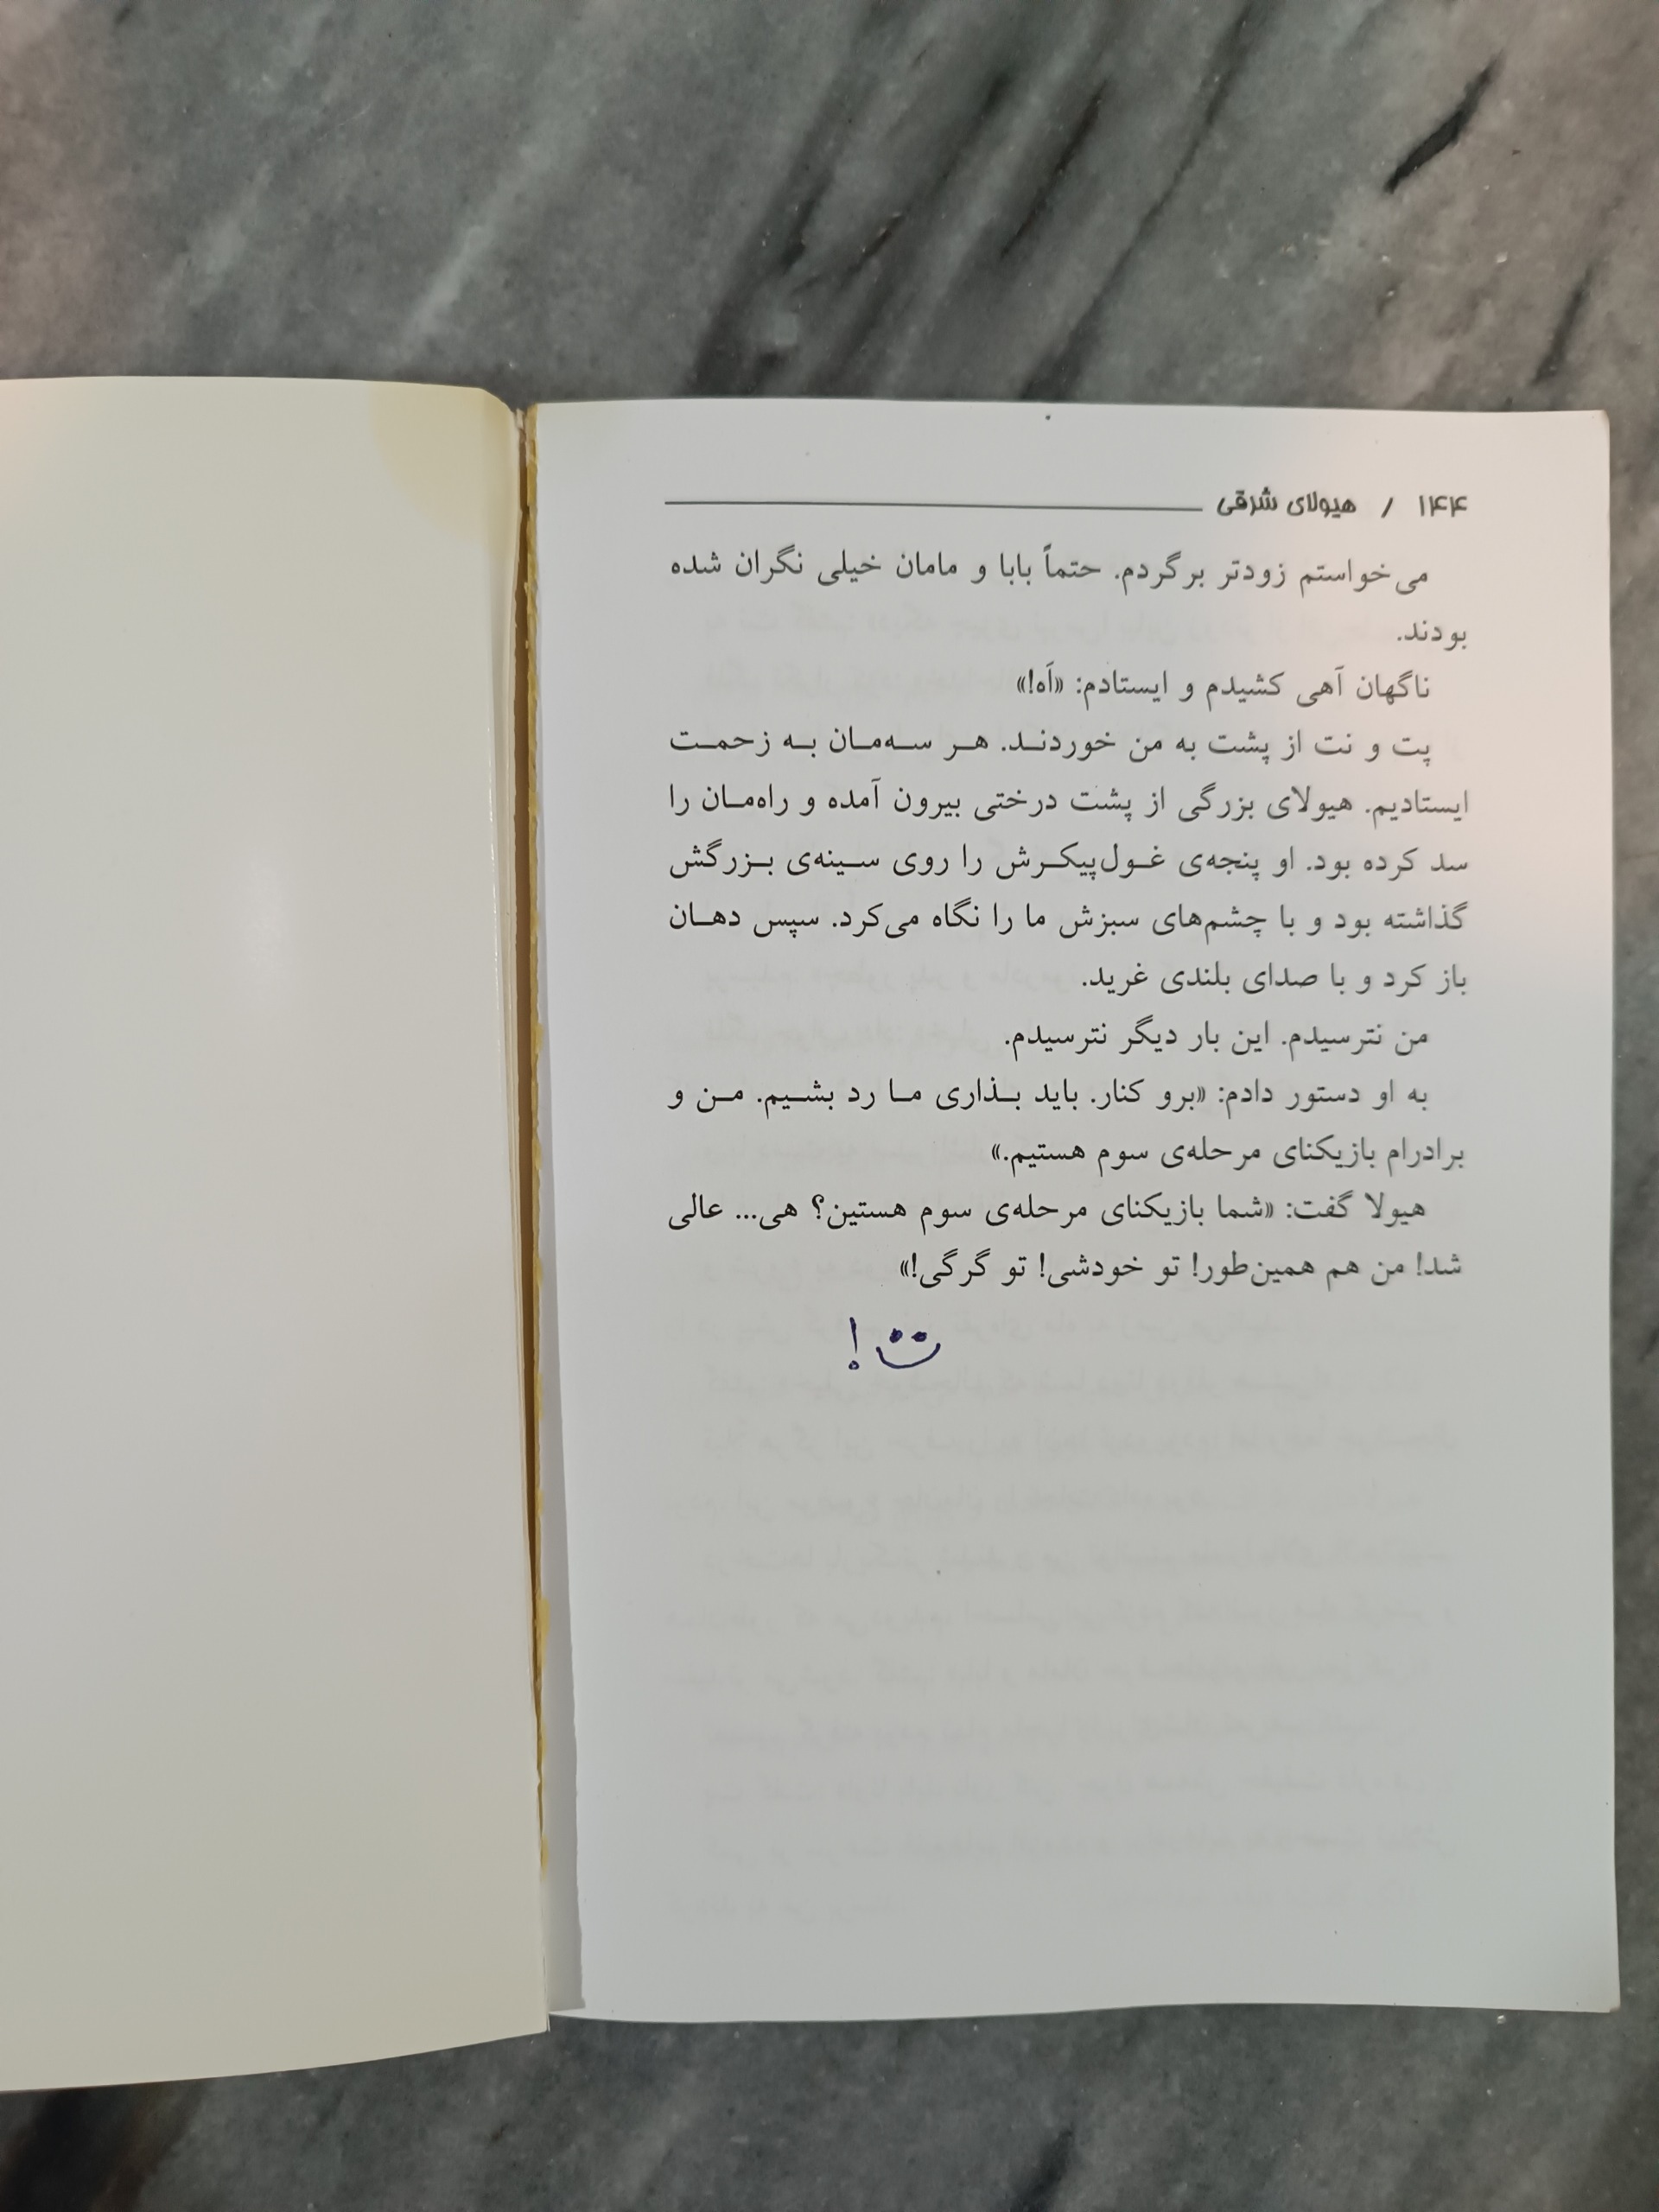 ۱۴۴ / هیولای شرقی
می‌خواستم زودتر برگردم. حتماً بابا و مامان خیلی نگران شده
بودند.
ناگهان آهی کشیدم و ایستادم: «اَه!»
پت و نت از پشت به من خوردند. هر سه‌مان به زحمت
ایستادیم. هیولای بزرگی از پشت درختی بیرون آمده و راه‌مان را
سد کرده بود. او پنجه‌ی غول‌پیکرش را روی سینه‌ی بزرگش
گذاشته بود و با چشم‌های سبزش ما را نگاه می‌کرد. سپس دهان
باز کرد و با صدای بلندی غرید.
من نترسیدم. این بار دیگر نترسیدم.
به او دستور دادم: «برو کنار. باید بذاری ما رد بشیم. من و
برادرام بازیکنای مرحله‌ی سوم هستیم.»
هیولا گفت: «شما بازیکنای مرحله‌ی سوم هستین؟ هی... عالی
شد! من هم همین‌طور! تو خودشی! تو گرگی!»
!